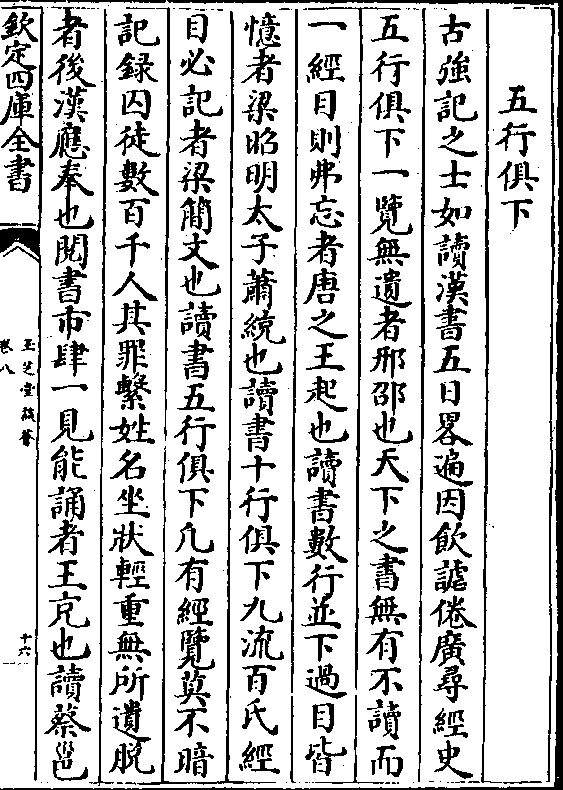 五行俱下
古強記之士如讀漢書五日畧遍因飲謔倦廣尋經史
五行俱下一覽無遺者邢邵也天下之書無有不讀而
一經目則弗忘者唐之王起也讀書數行並下過目皆
憶者梁昭明太子蕭統也讀書十行俱下九流百氏經
目必記者梁簡文也讀書五行俱下凢有經覽莫不暗
記録囚徒數百千人其罪繫姓名坐狀輕重無所遺脫
者後漢應奉也閱書市肆一見能誦者王充也讀蔡邕
欽定四庫全書
玉芝堂談薈
卷八
十六